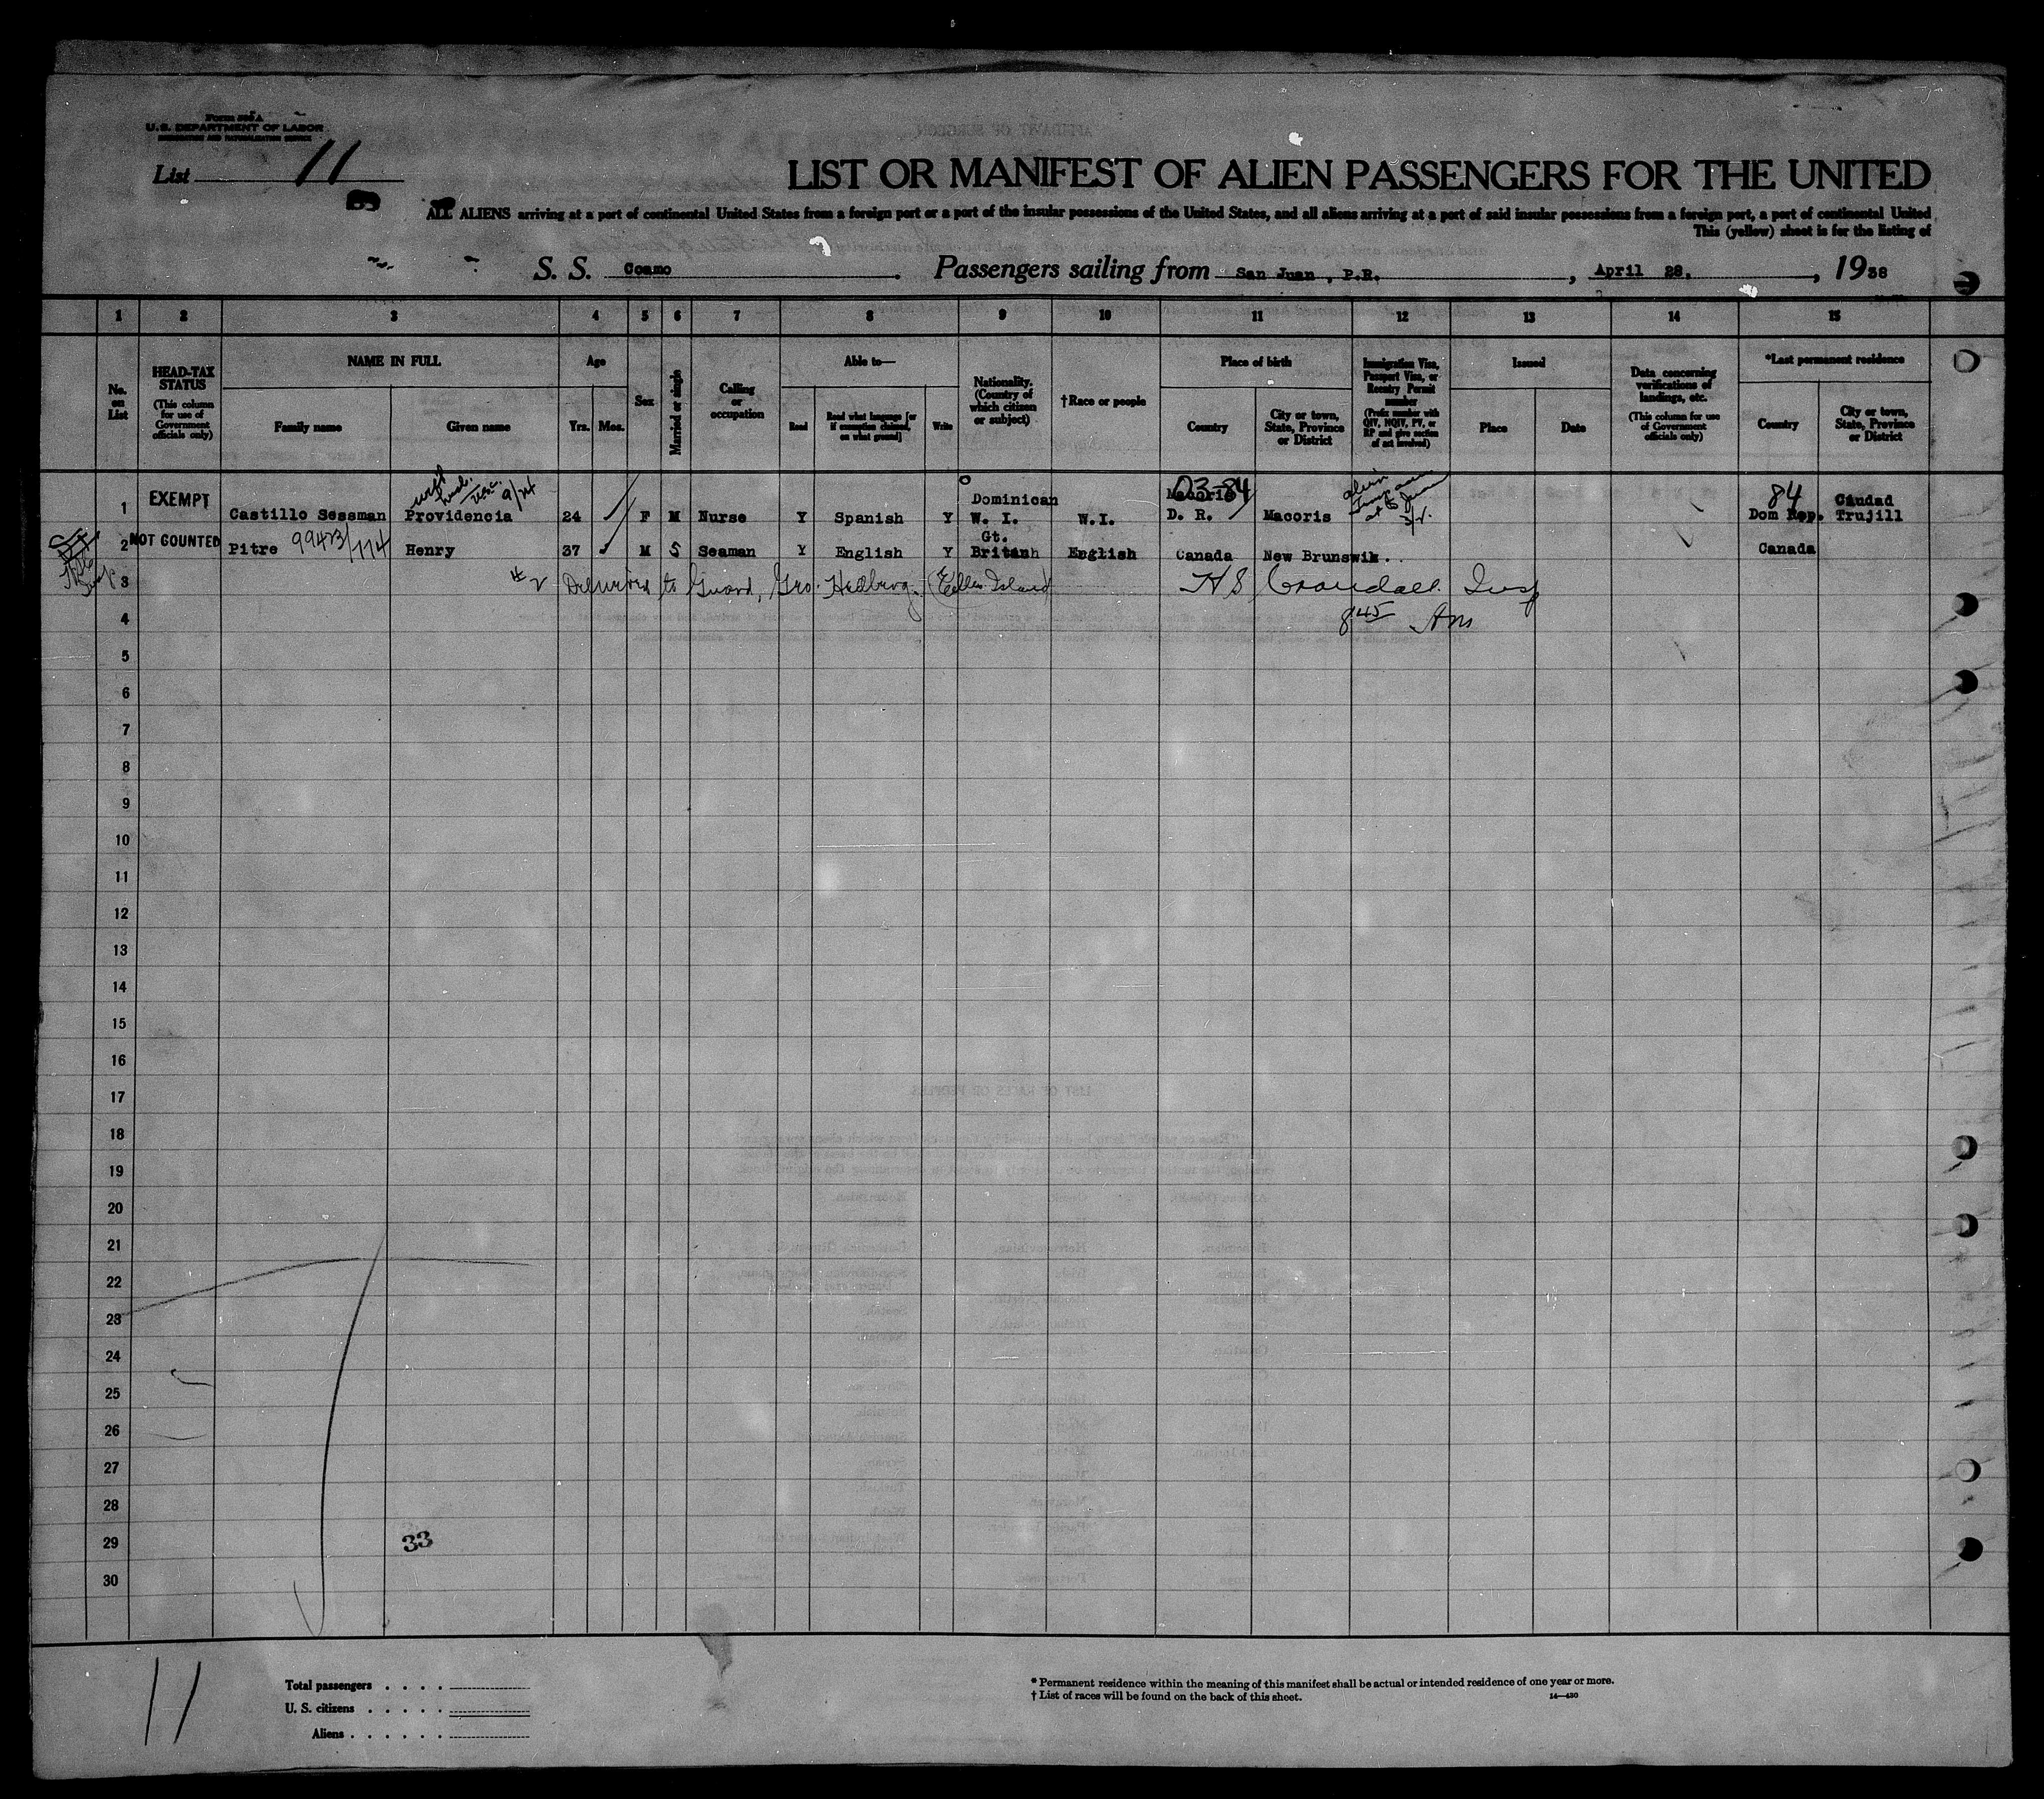 Form 505 A
U. S. DEPARTMENT OF LABOR
IMMIGRATION AND NATURALIZATION SERVICE
List 11
LIST OR MANIFEST OF ALIEN PASSENGERS FOR THE UNITED
ALL ALIENS arriving at a port of continental United States from a foreign port or a port of the insular possessions of the United States, and all aliens arriving at a port of said insular possessions from a foreign port, a port of continental United
This (yellow) sheet is for the listing of
S. S. Coamo. Passengers sailing from San Juan, P.R., April 28, 1938
1 2 3 4 5 6 7 8 9 10 11 12 13 14 15
No. on List
HEAD-TAX STATUS
(This column for use of Government officials only)
NAME IN FULL
Family name
Given name
Age
Yrs. Mos.
Sex
Married or single
Calling or occupation
Able to—
Read
Read what language [or if exemption claimed, on what ground]
Write
Nationality. (Country of which citizen or subject)
†Race or people
Place of birth
Country
City or town, State, Province or District
Immigration Visa, Passport Visa, or Reentry Permit number
(Prefix number with QIV, NQIV, PV, or RP and give section of act involved)
Issued
Place
Date
Data concerning verifications of landings, etc.
(This column for use of Government officials only)
*Last permanent residence
Country
City or town, State, Province or District
EXEMPT Dominican Macoris 03-84 84 Ciudad
1 Castillo Sessman Providencia 24 F M Nurse Y Spanish Y W. I. W.I. D. R. Macoris Dom Rep. Trujill
2 NOT COUNTED Pitre 99473/774 Henry 37 M S Seaman Y English Y Gt. British English Canada New Brunswik. Canada
3 #2 Delivered to Guard, Geo. Hedberg. (Ellis Island) H S Crandall Insp
4 8 45 Am
5
6
7
8
9
10
11
12
13
14
15
16
17
18
19
20
21
22
23
24
25
26
27
28
29 33
30
11
Total passengers
U. S. citizens
Aliens
* Permanent residence within the meaning of this manifest shall be actual or intended residence of one year or more.
† List of races will be found on the back of this sheet. 14—430